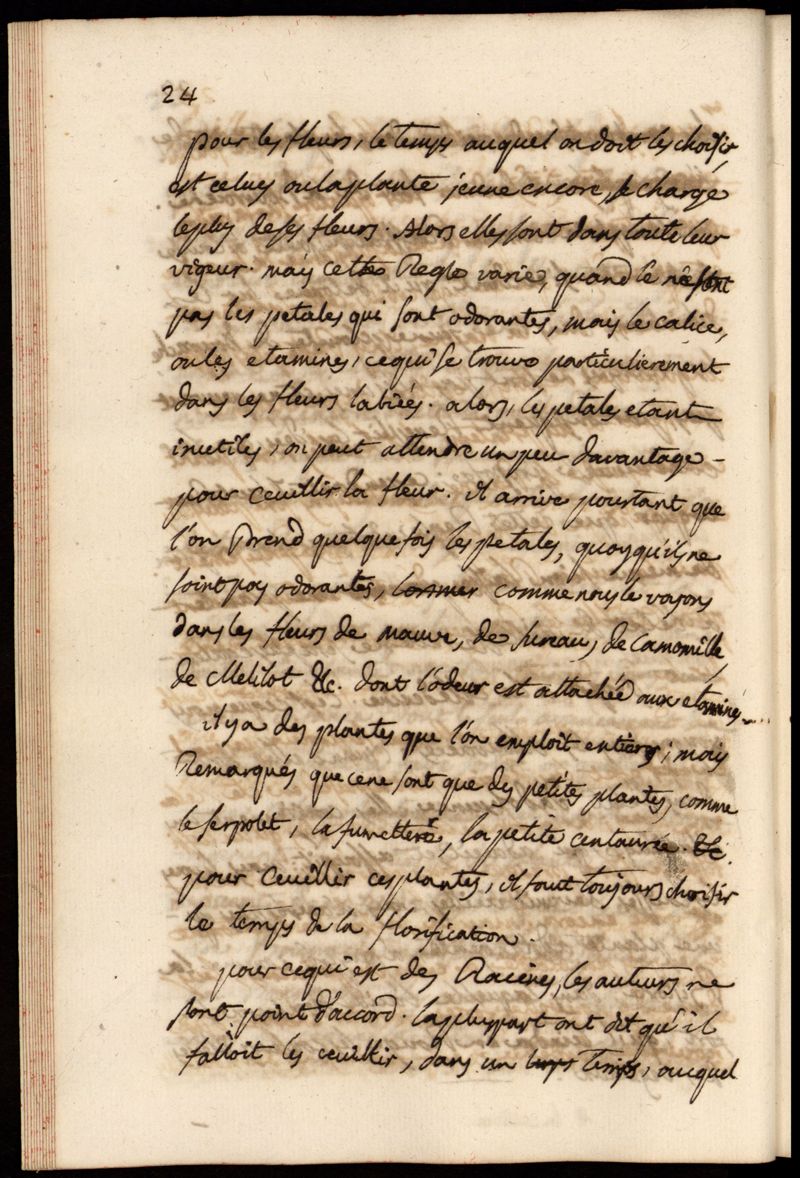 24
pour les fleurs, le temps auquel on doit les choisir,
est celuy ou la plante jeune encore, se charge
le plus de ses fleurs. Alors elles sont dans toute leur
vigeur. mais cette Regle varie, quand ce ne sont
pas les petales qui sont odorantes, mais le calice,
ou les etamines, ce qui se trouve particulierement
dans les fleurs labiées. alors, les petales etant
inutiles, on peut attendre un peu davantage -
pour ceuillir la fleur. il arrive pourtant que
l'on Prend quelque fois les petales, quoyqu'ils ne
soint pas odorantes, comme nous le voyons
dans les fleurs de mauve, de sureau, de Camomille,
de Melilot &c. dont l'odeur est attachée aux etamines...
il y a des plantes que l'on emploit entiers; mais
Remarqués que ce ne sont que des petites plantes, comme
le serpolet, la fumetterè, la petite centaurée. &c.
pour Ceuillir ces plantes, il faut toujours choisir
le temps de la florification.
pour ce qui est des Racines, les auteurs ne
sont point d'accord. la pluspart ont dit qu'il
falloit les ceuillir, dans un temps, auquel